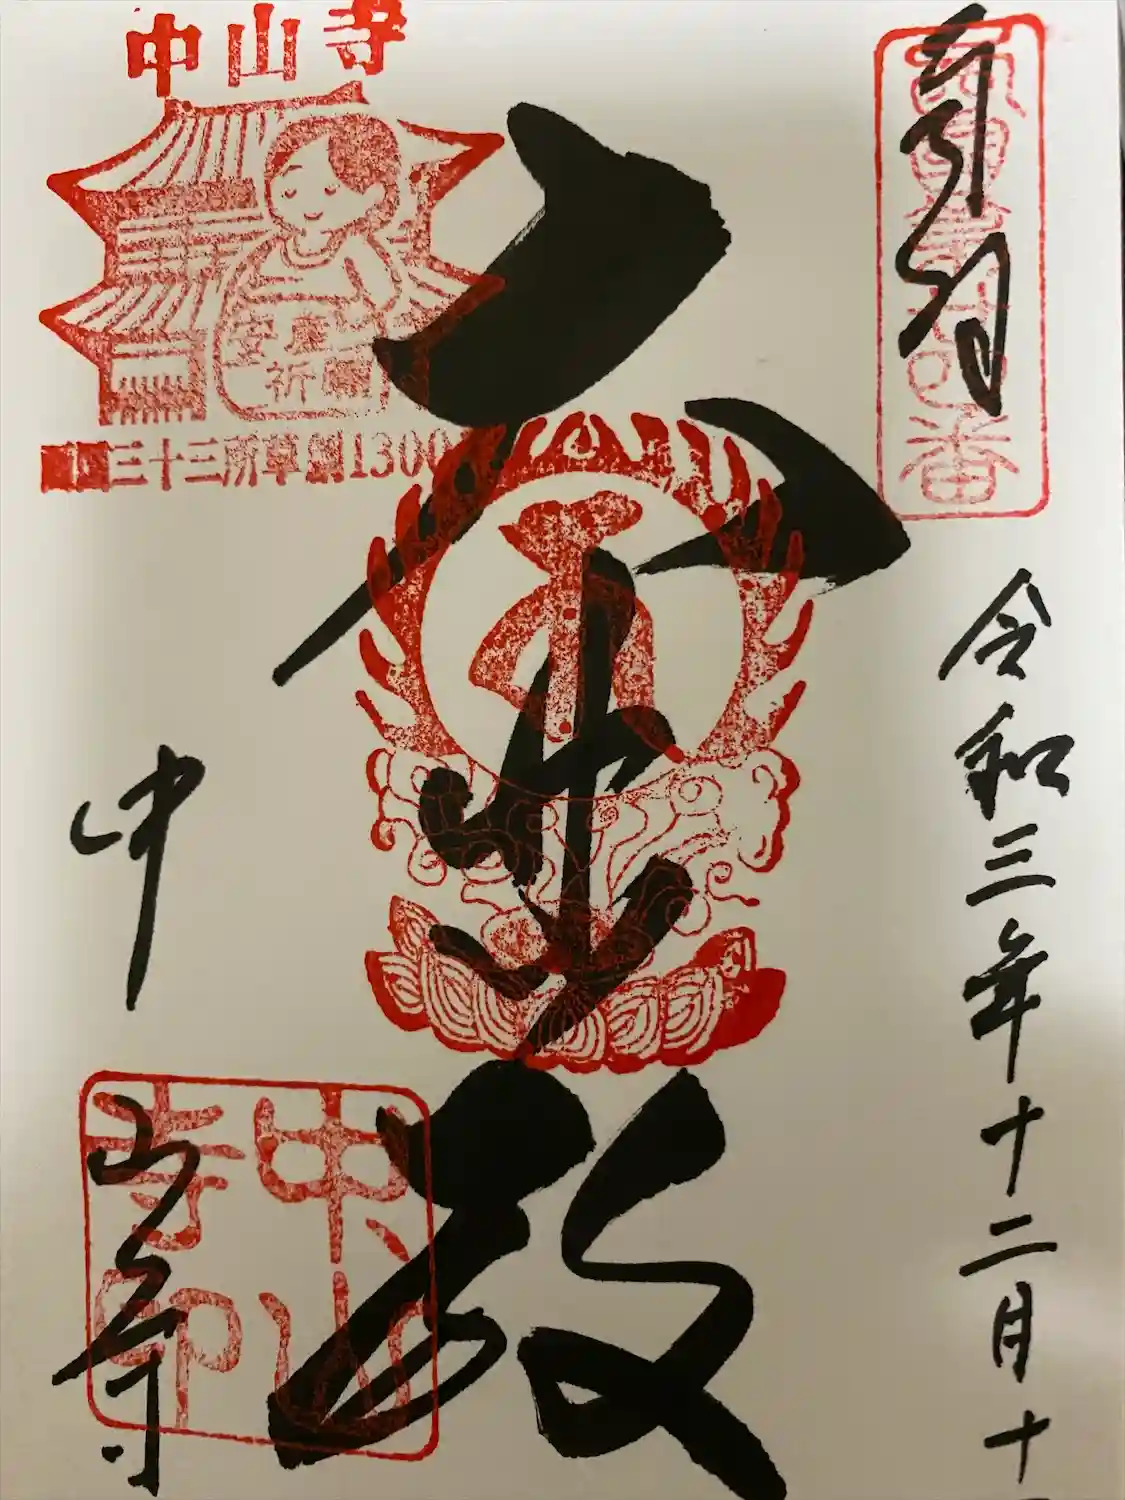 奉拝
西国第廿四番
令和三年十二月十
大悲殿
中山寺
安産
祈願
西国三十三所草創1300
中山寺
中山寺印